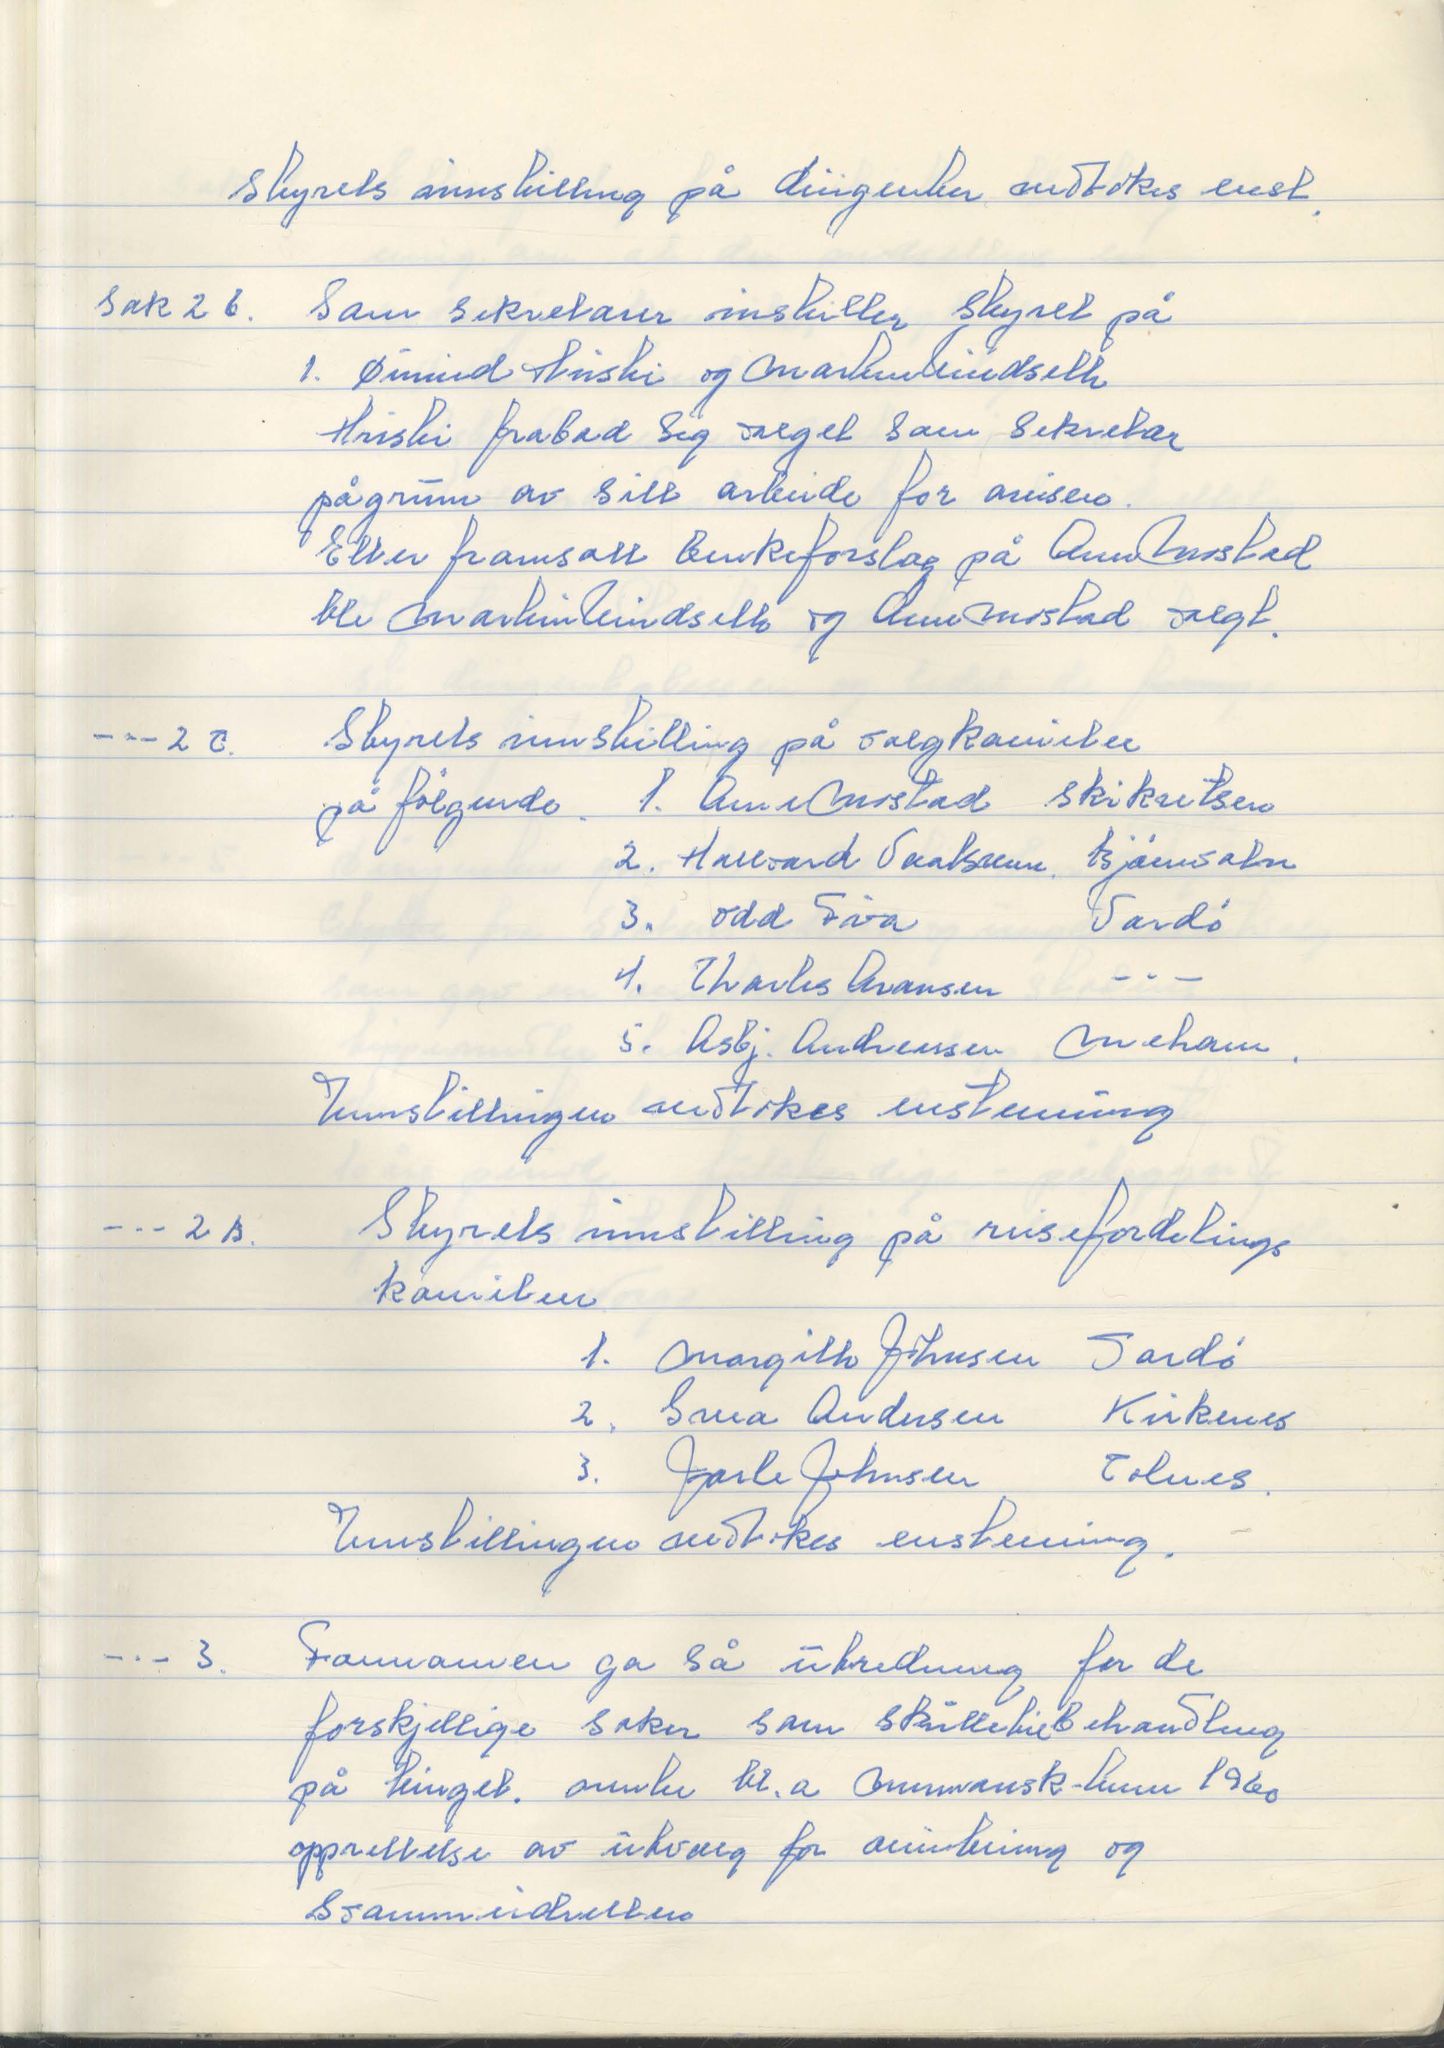 Styrets innstilling på dirigenter vedtokes enst.
Sak 2 b. Som sekretærer instiller styret på
1. Øivind Hriski og Martin Lindseth
Hriski frabad sig valget som sekretær
på grunn av sitt arbeide for avisen.
Etter framsatt benkeforslag på Arne Mostad
ble Martin Lindseth og Arne Mostad valgt.
---2 C. Styrets innstilling på valgkomiteen
på følgende. 1. Arne Mostad skikretsen
2. Hallvard Bjørnvatn
3. Odd Vardö
4. Charles Aronsen -"-
5. Asbj. Andreassen Mehamn.
Innstillingen vedtokes enstemmig
---2 D. Styrets innstilling på reisefordelings
komiteen
1. Margith Johnsen Vardö
2. Svea Andersen Kirkenes
3. Jarle Johnsen
Innstillingen vedtokes enstemmig.
---3. Formannen ga så utredning for de
forskjellige saker som skulle til behandling
på tinget. bl.a Murmansk-turn 1960
opprettelse av utvalg for og
svømmeidretten